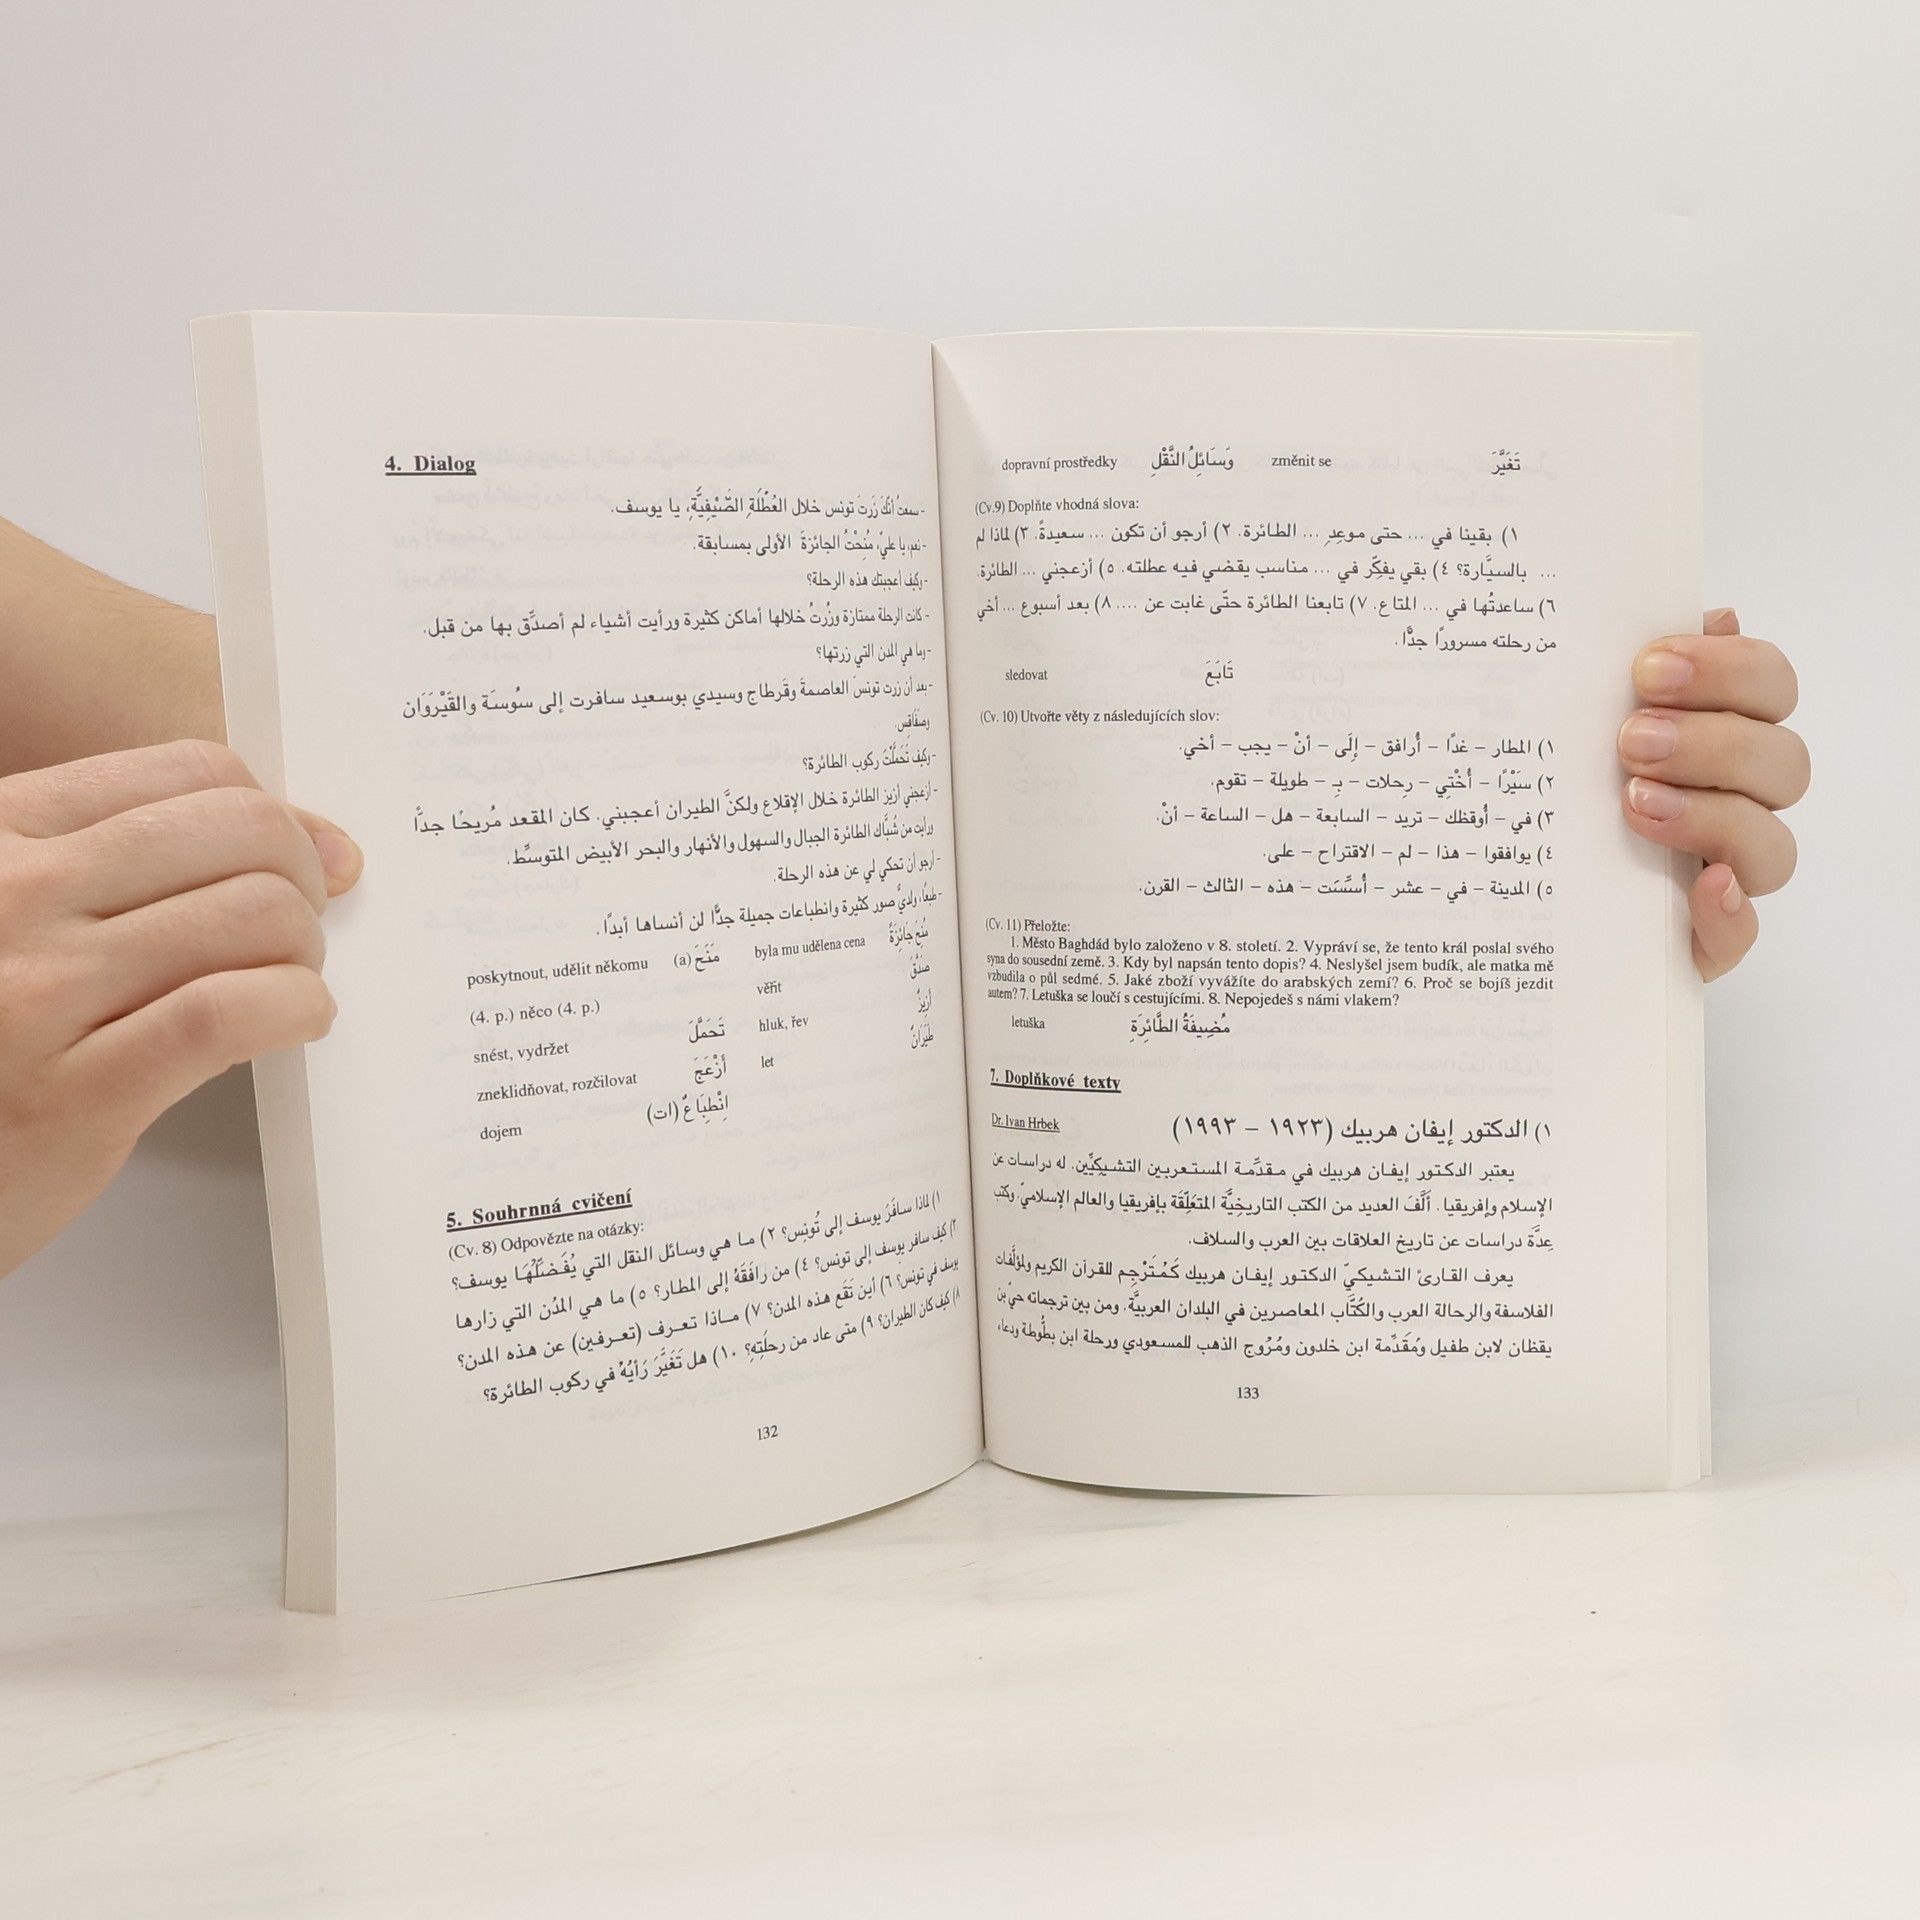 4. Dialog
- سمعتُ أنَّكَ زَرتَ تونس خلال العُطْلَةِ الصَّيْفِيَّةِ، يا يوسف.
- نعم، يا عليّ، مُنِحْتُ الجائزةَ الأولى بمسابقة.
- وكيف أعجبتك هذه الرحلة؟
- كانت الرحلة ممتازة وزُرتُ خلالها أماكن كثيرة ورأيت أشياء لم أصدِّق بها من قبل.
- وما هي المدن التي زرتها؟
- بعد أن زرت تونسَ العاصمةَ وقَرطاج وسيدي بوسعيد سافرت إلى سُوسَة والقَيْرَوَان
وصفاقس.
- وكيف تَحَمَّلْتَ ركوب الطائرة؟
- أزعجني أزيز الطائرة خلال الإقلاع ولكنَّ الطيران أعجبني. كان المقعد مُريحًا جدًّا
ورأيت من شُبَّاك الطائرة الجبال والسهول والأنهار والبحر الأبيض المتوسِّط.
- أرجو أن تحكي لي عن هذه الرحلة.
- طبعًا، ولديَّ صور كثيرة وانطباعات جميلة جدًّا لن أنساها أبدًا.
poskytnout, udělit někomu مَنَحَ (a) byla mu udělena cena مُنِحَ جَائِزَةً
(4. p.) něco (4. p.) věřit صَدَّقَ
snést, vydržet تَحَمَّلَ hluk, řev أَزِيزٌ
zneklidňovat, rozčilovat أَزْعَجَ let طَيَرَانٌ
dojem اِنْطِبَاعٌ (ات)
5. Souhrnná cvičení
(Cv. 8) Odpovězte na otázky:
١) لماذا سافَرَ يوسف إلى تُونِس؟ ٢) ما هي وسائل النقل التي يُفَضِّلُهَا يوسف؟
٣) كيف سافر يوسف إلى تونس؟ ٤) من رافَقَهُ إلى المطار؟ ٥) ما هي المدُن التي زارها
يوسف في تونس؟ ٦) أين تَقَع هذه المدن؟ ٧) ماذا تعرف (تعرفين) عن هذه المدن؟
٨) كيف كان الطيران؟ ٩) متى عاد من رحلَتِهِ؟ ١٠) هل تَغَيَّرَ رَأيُهُ في ركوب الطائرة؟
132
dopravní prostředky وَسَائِلُ النَّقْلِ změnit se تَغَيَّرَ
(Cv.9) Doplňte vhodná slova:
١) بقينا في ... حتى موعدِ ... الطائرة. ٢) أرجو أن تكون ... سعيدةً. ٣) لماذا لم
... بالسيَّارة؟ ٤) بقي يفكِّر في ... مناسب يقضي فيه عطلته. ٥) أزعجني ... الطائرة.
٦) ساعدتُها في ... المتاع. ٧) تابعنا الطائرة حتّى غابت عن .... ٨) بعد أسبوع ... أخي
من رحلته مسرورًا جدًّا.
sledovat تَابَعَ
(Cv. 10) Utvořte věty z následujících slov:
١) المطار – غدًا – أُرافق – إِلَى – أنْ – يجب – أخي.
٢) سَيْرًا – أُخْتِي – رحلات – بِـ – طويلة – تقوم.
٣) في – أُوقظك – تريد – السابعة – هل – الساعة – أنْ.
٤) يوافقوا – هذا – لم – الاقتراح – على.
٥) المدينة – في – عشر – أُسِّسَت – هذه – الثالث – القرن.
(Cv. 11) Přeložte:
1. Město Baghdád bylo založeno v 8. století. 2. Vypráví se, že tento král poslal svého
syna do sousední země. 3. Kdy byl napsán tento dopis? 4. Neslyšel jsem budík, ale matka mě
vzbudila o půl sedmé. 5. Jaké zboží vyvážíte do arabských zemí? 6. Proč se bojíš jezdit
autem? 7. Letuška se loučí s cestujícími. 8. Nepojedeš s námi vlakem?
letuška مُضِيفَةُ الطَّائِرَةِ
7. Doplňkové texty
Dr. Ivan Hrbek ١) الدكتور إيفان هربيك (١٩٢٣ – ١٩٩٣)
يعتبر الدكتور إيفان هربيك في مقدِّمة المستعربين التشيكيِّين. له دراسات عن
الإسلام وإفريقيا. أَلَّفَ العديد من الكتب التاريخيَّة المتعَلِّقَة بإفريقيا والعالم الإسلاميّ. وكتب
عِدَّةَ دراسات عن تاريخ العلاقات بين العرب والسلاف.
يعرف القارئ التشيكيّ الدكتور إيفان هربيك كَمُتَرْجِم للقرآن الكريم ولمؤلَّفات
الفلاسفة والرحالة العرب والكُتَّاب المعاصرين في البلدان العربيَّة. ومن بين ترجماته حيّ بن
يقظان لابن طفيل ومُقَدِّمة ابن خلدون ومُرُوج الذهب للمسعودي ورحلة ابن بطُّوطة ودعاء
133